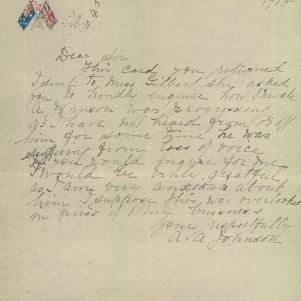 1918
Dear Sir
This card you returned
I sent to Miss Gilbert she asked
you to kindly enquire how Private
A Johnson was progressing
as I have not heard from or of
him for some time he was
suffering from loss of voice
If you would enquire for me
I would be truly grateful
as I am very anxious about
him I suppose this was overlooked
in press of other business
Your respectfully
A. A Johnson